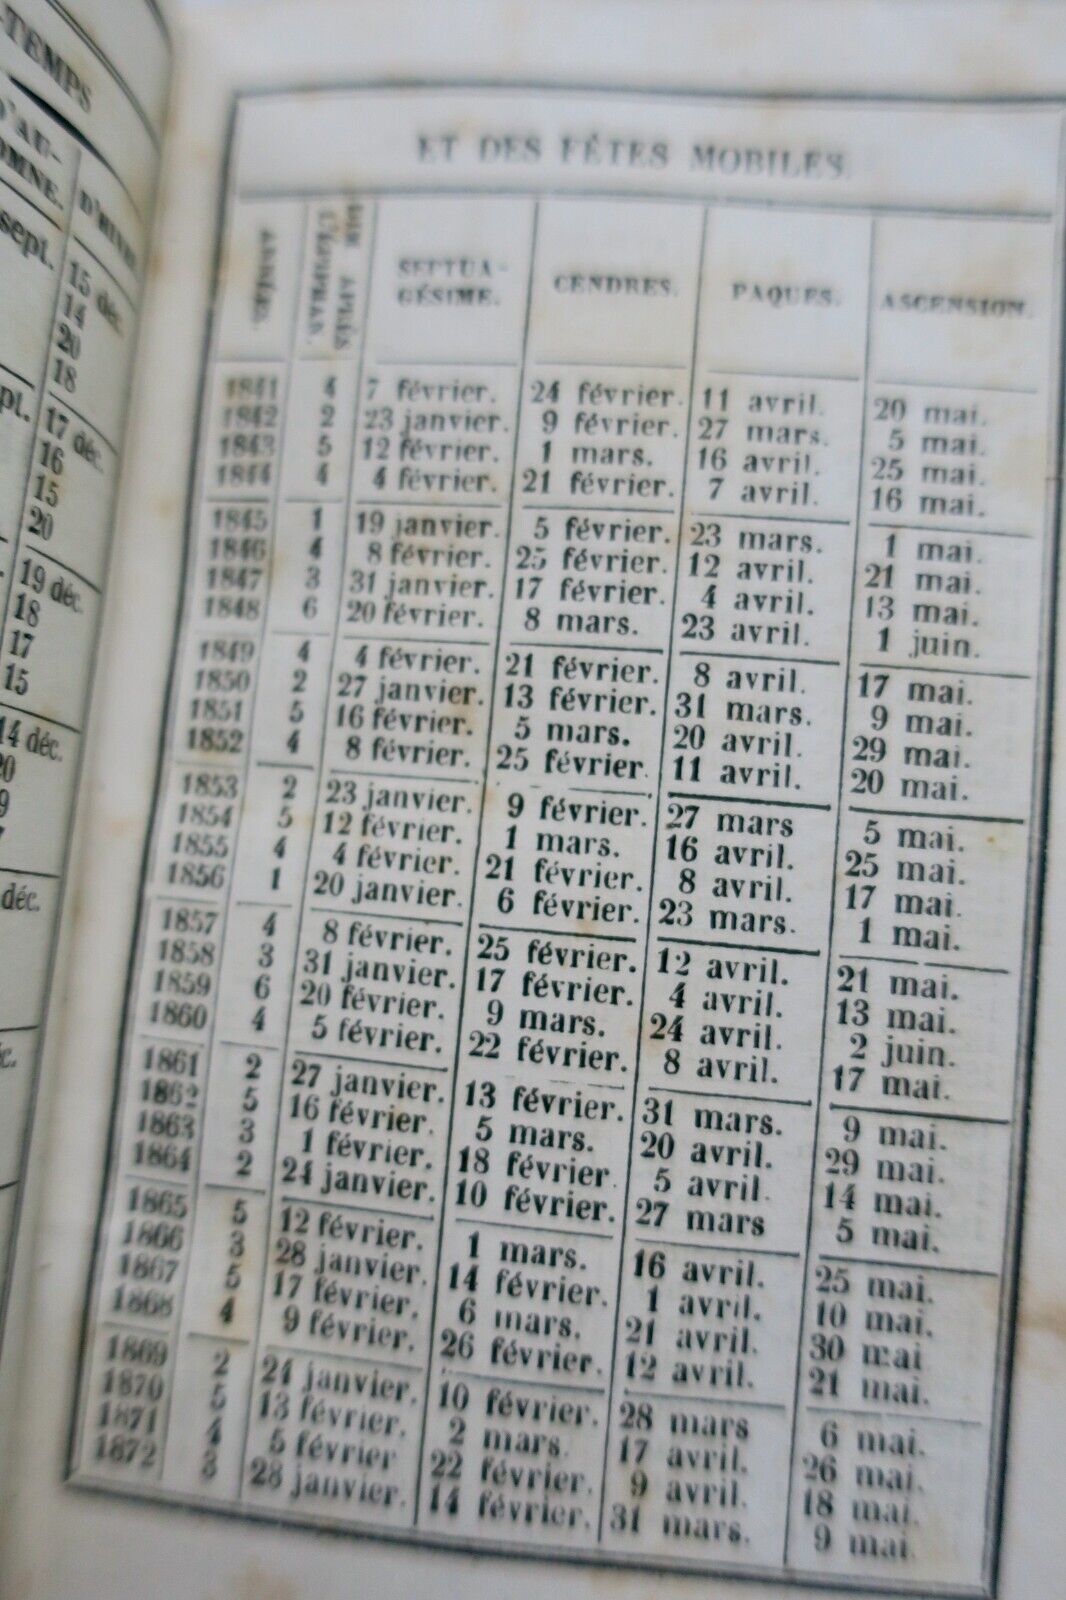 -TEMPS
D'AU-
OMNE.
D'HIVER
sept.
15 déc.
14
20
18
pt.
17 déc.
16
15
20
19 déc.
18
17
15
14 déc.
20
déc.
ET DES FÊTES MOBILES.
ANNÉES. DIM. APRÈS L'ÉPIPHAN. SEPTUA-GÉSIME. CENDRES. PAQUES. ASCENSION.
1841 4 7 février. 24 février. 11 avril. 20 mai.
1842 2 23 janvier. 9 février. 27 mars. 5 mai.
1843 5 12 février. 1 mars. 16 avril. 25 mai.
1844 4 4 février. 21 février. 7 avril. 16 mai.
1845 1 19 janvier. 5 février. 23 mars. 1 mai.
1846 4 8 février. 25 février. 12 avril. 21 mai.
1847 3 31 janvier. 17 février. 4 avril. 13 mai.
1848 6 20 février. 8 mars. 23 avril. 1 juin.
1849 4 4 février. 21 février. 8 avril. 17 mai.
1850 2 27 janvier. 13 février. 31 mars. 9 mai.
1851 5 16 février. 5 mars. 20 avril. 29 mai.
1852 4 8 février. 25 février. 11 avril. 20 mai.
1853 2 23 janvier. 9 février. 27 mars 5 mai.
1854 5 12 février. 1 mars. 16 avril. 25 mai.
1855 4 4 février. 21 février. 8 avril. 17 mai.
1856 1 20 janvier. 6 février. 23 mars. 1 mai.
1857 4 8 février. 25 février. 12 avril. 21 mai.
1858 3 31 janvier. 17 février. 4 avril. 13 mai.
1859 6 20 février. 9 mars. 24 avril. 2 juin.
1860 4 5 février. 22 février. 8 avril. 17 mai.
1861 2 27 janvier. 13 février. 31 mars. 9 mai.
1862 5 16 février. 5 mars. 20 avril. 29 mai.
1863 3 1 février. 18 février. 5 avril. 14 mai.
1864 2 24 janvier. 10 février. 27 mars 5 mai.
1865 5 12 février. 1 mars. 16 avril. 25 mai.
1866 3 28 janvier. 14 février. 1 avril. 10 mai.
1867 5 17 février. 6 mars. 21 avril. 30 mai
1868 4 9 février. 26 février. 12 avril. 21 mai.
1869 2 24 janvier. 10 février. 28 mars 6 mai.
1870 5 13 février. 2 mars. 17 avril. 26 mai.
1871 4 5 février 22 février. 9 avril. 18 mai.
1872 3 28 janvier. 14 février. 31 mars. 9 mai.